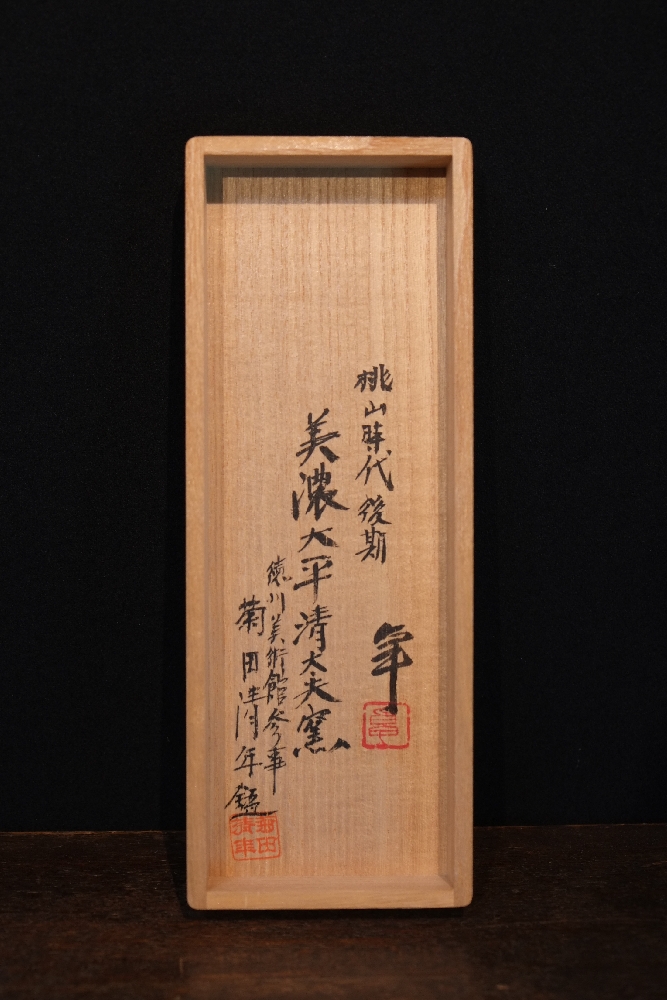 桃山時代後期
美濃大平清大夫窯
年
徳川美術館参事
菊田清年鑑
菊田
清年